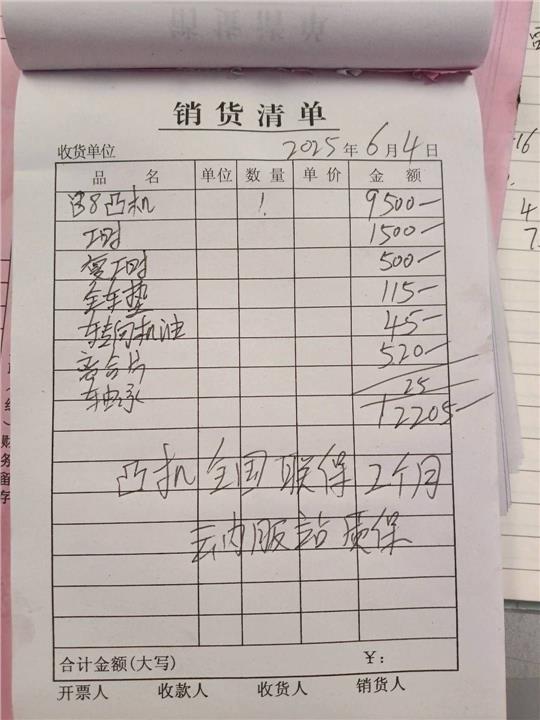 销货清单
收货单位 2025年6月4日
品名 单位 数量 单价 金额
凸机 1 9500-
工时 1500-
变工时 500-
全车垫 115-
转向机油 45-
离合片 520-
轴承 25
12205-
凸机全国联保2个月
云内服站质保
合计金额(大写) ¥:
开票人 收款人 收货人 销货人